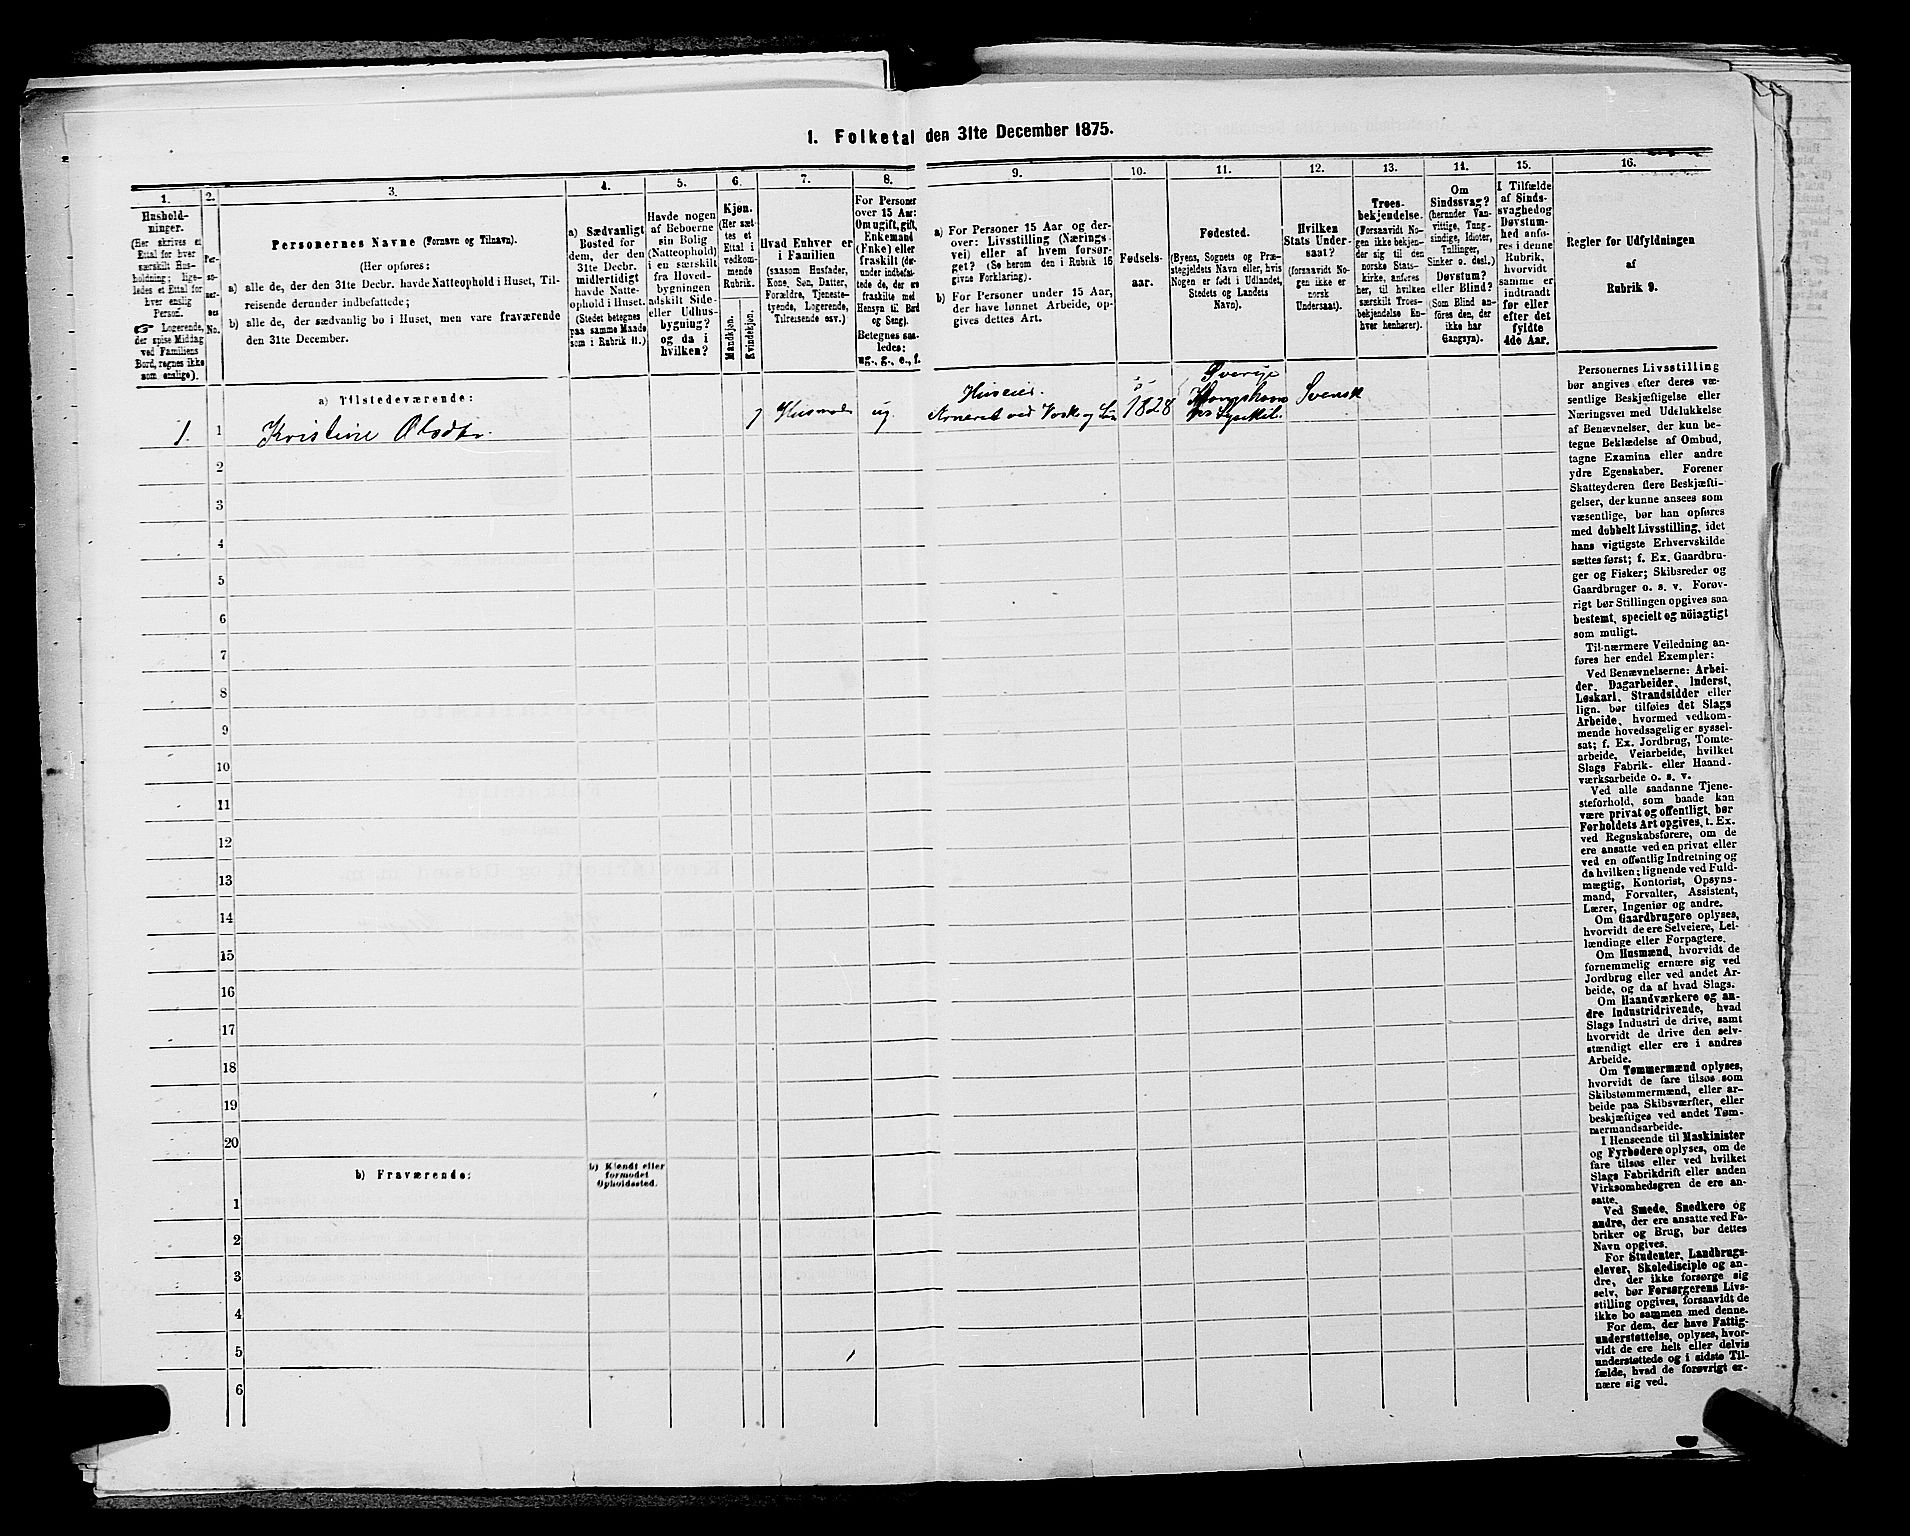 1. Folketal den 31te December 1875.
1.
Hushold-
ninger.
(Her skrives et
Ettal for hver
særskilt Hus-
holdning; lige-
ledes et Ettal for
hver enslig
Person.
☞ Logerende,
der spise Middag
ved Familiens
Bord, regnes ikke
som enslige).
2.
Per-
so-
ner-
nes
No.
3.
Personernes Navne (Fornavn og Tilnavn).
(Her opføres:
a) alle de, der den 31te Decbr. havde Natteophold i Huset, Til-
reisende derunder indbefattede;
b) alle de, der sædvanlig bo i Huset, men vare fraværende
den 31te December.
4.
a) Sædvanligt
Bosted for
dem, der den
31te Decbr.
midlertidigt
havde Natte-
ophold i Huset.
(Stedet betegnes
paa samme Maade
som i Rubrik 11.)
5.
Havde nogen
af Beboerne
sin Bolig
(Natteophold)
i en særskilt
fra Hoved-
bygningen
adskilt Side-
eller Udhus-
bygning?
og da i
hvilken?
6.
Kjøn.
(Her sæt-
tes et
Ettal i
vedkom-
mende
Rubrik.
Mandkjøn.
Kvindekjøn.
7.
Hvad Enhver er
i Familien
(saasom Husfader,
Kone, Søn, Datter,
Forældre, Tjeneste-
tyende, Logerende,
Tilreisende osv.)
8.
For Personer
over 15 Aar:
Om ugift, gift,
Enkemand
(Enke) eller
fraskilt (der-
under indbefat-
tede de, der ere
fraskilte med
Hensyn til Bord
og Seng).
Betegnes saa-
ledes:
ug., g., e., f.
9.
a) For Personer 15 Aar og der-
over: Livsstilling (Nærings-
vei) eller af hvem forsør-
get? (Se herom den i Rubrik 16
givne Forklaring).
b) For Personer under 15 Aar,
der have lønnet Arbeide, op-
gives dettes Art.
10.
Fødsels-
aar.
11.
Fødested.
(Byens, Sognets og Præ-
stegjeldets Navn eller, hvis
Nogen er født i Udlandet,
Stedets og Landets
Navn).
12.
Hvilken
Stats Under-
saat?
(forsaavidt No-
gen ikke er
norsk
Undersaat).
13.
Troes-
bekjendelse.
(Forsaavidt No-
gen ikke bekjen-
der sig til den
norske Stats-
kirke, anføres
her, til hvilken
særskilt Troes-
bekjendelse En-
hver henhører).
14.
Om
Sindssvag?
(herunder Van-
vittige, Tung-
sindige, Idioter,
Tullinger,
Sinker o. desl.)
Døvstum?
eller Blind?
(Som Blind an-
føres den, der
ikke har
Gangsyn).
15.
I Tilfælde
af Sinds-
svaghed og
Døvstum-
hed anfø-
res i denne
Rubrik,
hvorvidt
samme er
indtraadt
før eller
efter det
fyldte
4de Aar.
16.
Regler for Udfyldningen
af
Rubrik 9.
a) Tilstedeværende:
1. 1 Kristine Olsdtr. 1 ug. Huseier. 1828 Sverige Svensk
2
3
4
5
6
7
8
9
10
11
12
13
14
15
16
17
18
19
20
b) Fraværende:
b) Kjendt eller
formodet
Opholdssted.
1
2
3
4
5
6
Personernes Livsstilling
bør angives efter deres væ-
sentlige Beskjæftigelse eller
Næringsvei med Udelukkelse
af Benævnelser, der kun be-
tegne Beklædelse af Ombud,
tagne Examina eller andre
ydre Egenskaber. Forener
Skatteyderen flere Beskjæfti-
gelser, der kunne ansees som
væsentlige, bør han opføres
med dobbelt Livsstilling, idet
hans vigtigste Erhvervskilde
sættes først; f. Ex. Gaardbru-
ger og Fisker; Skibsreder og
Gaardbruger o. s. v. Forøv-
rigt bør Stillingen opgives saa
bestemt, specielt og nöiagtigt
som muligt.
Til nærmere Veiledning an-
føres her endel Exempler:
Ved Benævnelserne: Arbei-
der, Dagarbeider, Inderst,
Løskarl, Strandsidder eller
lign. bør tilføies det Slags
Arbeide, hvormed vedkom-
mende hovedsagelig er syssel-
sat; f. Ex. Jordbrug, Tomte-
arbeide, Veiarbeide, hvilket
Slags Fabrik- eller Haand-
værksarbeide o. s. v.
Ved alle saadanne Tjene-
steforhold, som baade kan
være privat og offentligt, bør
Forholdets Art opgives, t. Ex.
ved Regnskabsførere, om de
ere ansatte ved en privat eller
ved en offentlig Indretning og
da hvilken; lignende ved Fuld-
mægtig, Kontorist, Opsyns-
mand, Forvalter, Assistent,
Lærer, Ingeniør og andre.
Om Gaardbrugere oplyses,
hvorvidt de ere Selveiere, Lei-
lændinge eller Forpagtere.
Om Husmænd, hvorvidt de
fornemmelig ernære sig ved
Jordbrug eller ved andet Ar-
beide, og da af hvad Slags.
Om Haandværkere og an-
dre Industridrivende, hvad
Slags Industri de drive, samt
hvorvidt de drive den selv-
stændigt eller ere i andres
Arbeide.
Om Tømmermænd oplyses,
hvorvidt de fare tilsøs som
Skibstømmermænd, eller ar-
beide paa Skibsværfter, eller
beskjæftiges ved andet Tøm-
mermandsarbeide.
I Henseende til Maskinister
og Fyrbødere oplyses, om de
fare tilsøs eller ved hvilket
Slags Fabrikdrift eller anden
Virksomhedsgren de ere an-
satte.
Ved Smede, Snedkere og
andre, der ere ansatte ved Fa-
briker og Brug, bør dettes
Navn opgives.
For Studenter, Landbrugs-
elever, Skoledisciple og an-
dre, der ikke forsørge sig
selv, bør Forsørgerens Livs-
stilling opgives, forsaavidt de
ikke bo sammen med denne.
For dem, der have Fattig-
understøttelse, oplyses, hvor-
vidt de ere helt eller delvis
understøttede og i sidste Til-
fælde, hvad de forøvrigt er-
nære sig ved.